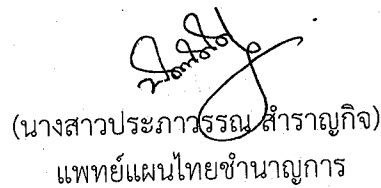 (นางสาวประภาวรรณ สำราญกิจ)
แพทย์แผนไทยชำนาญการ